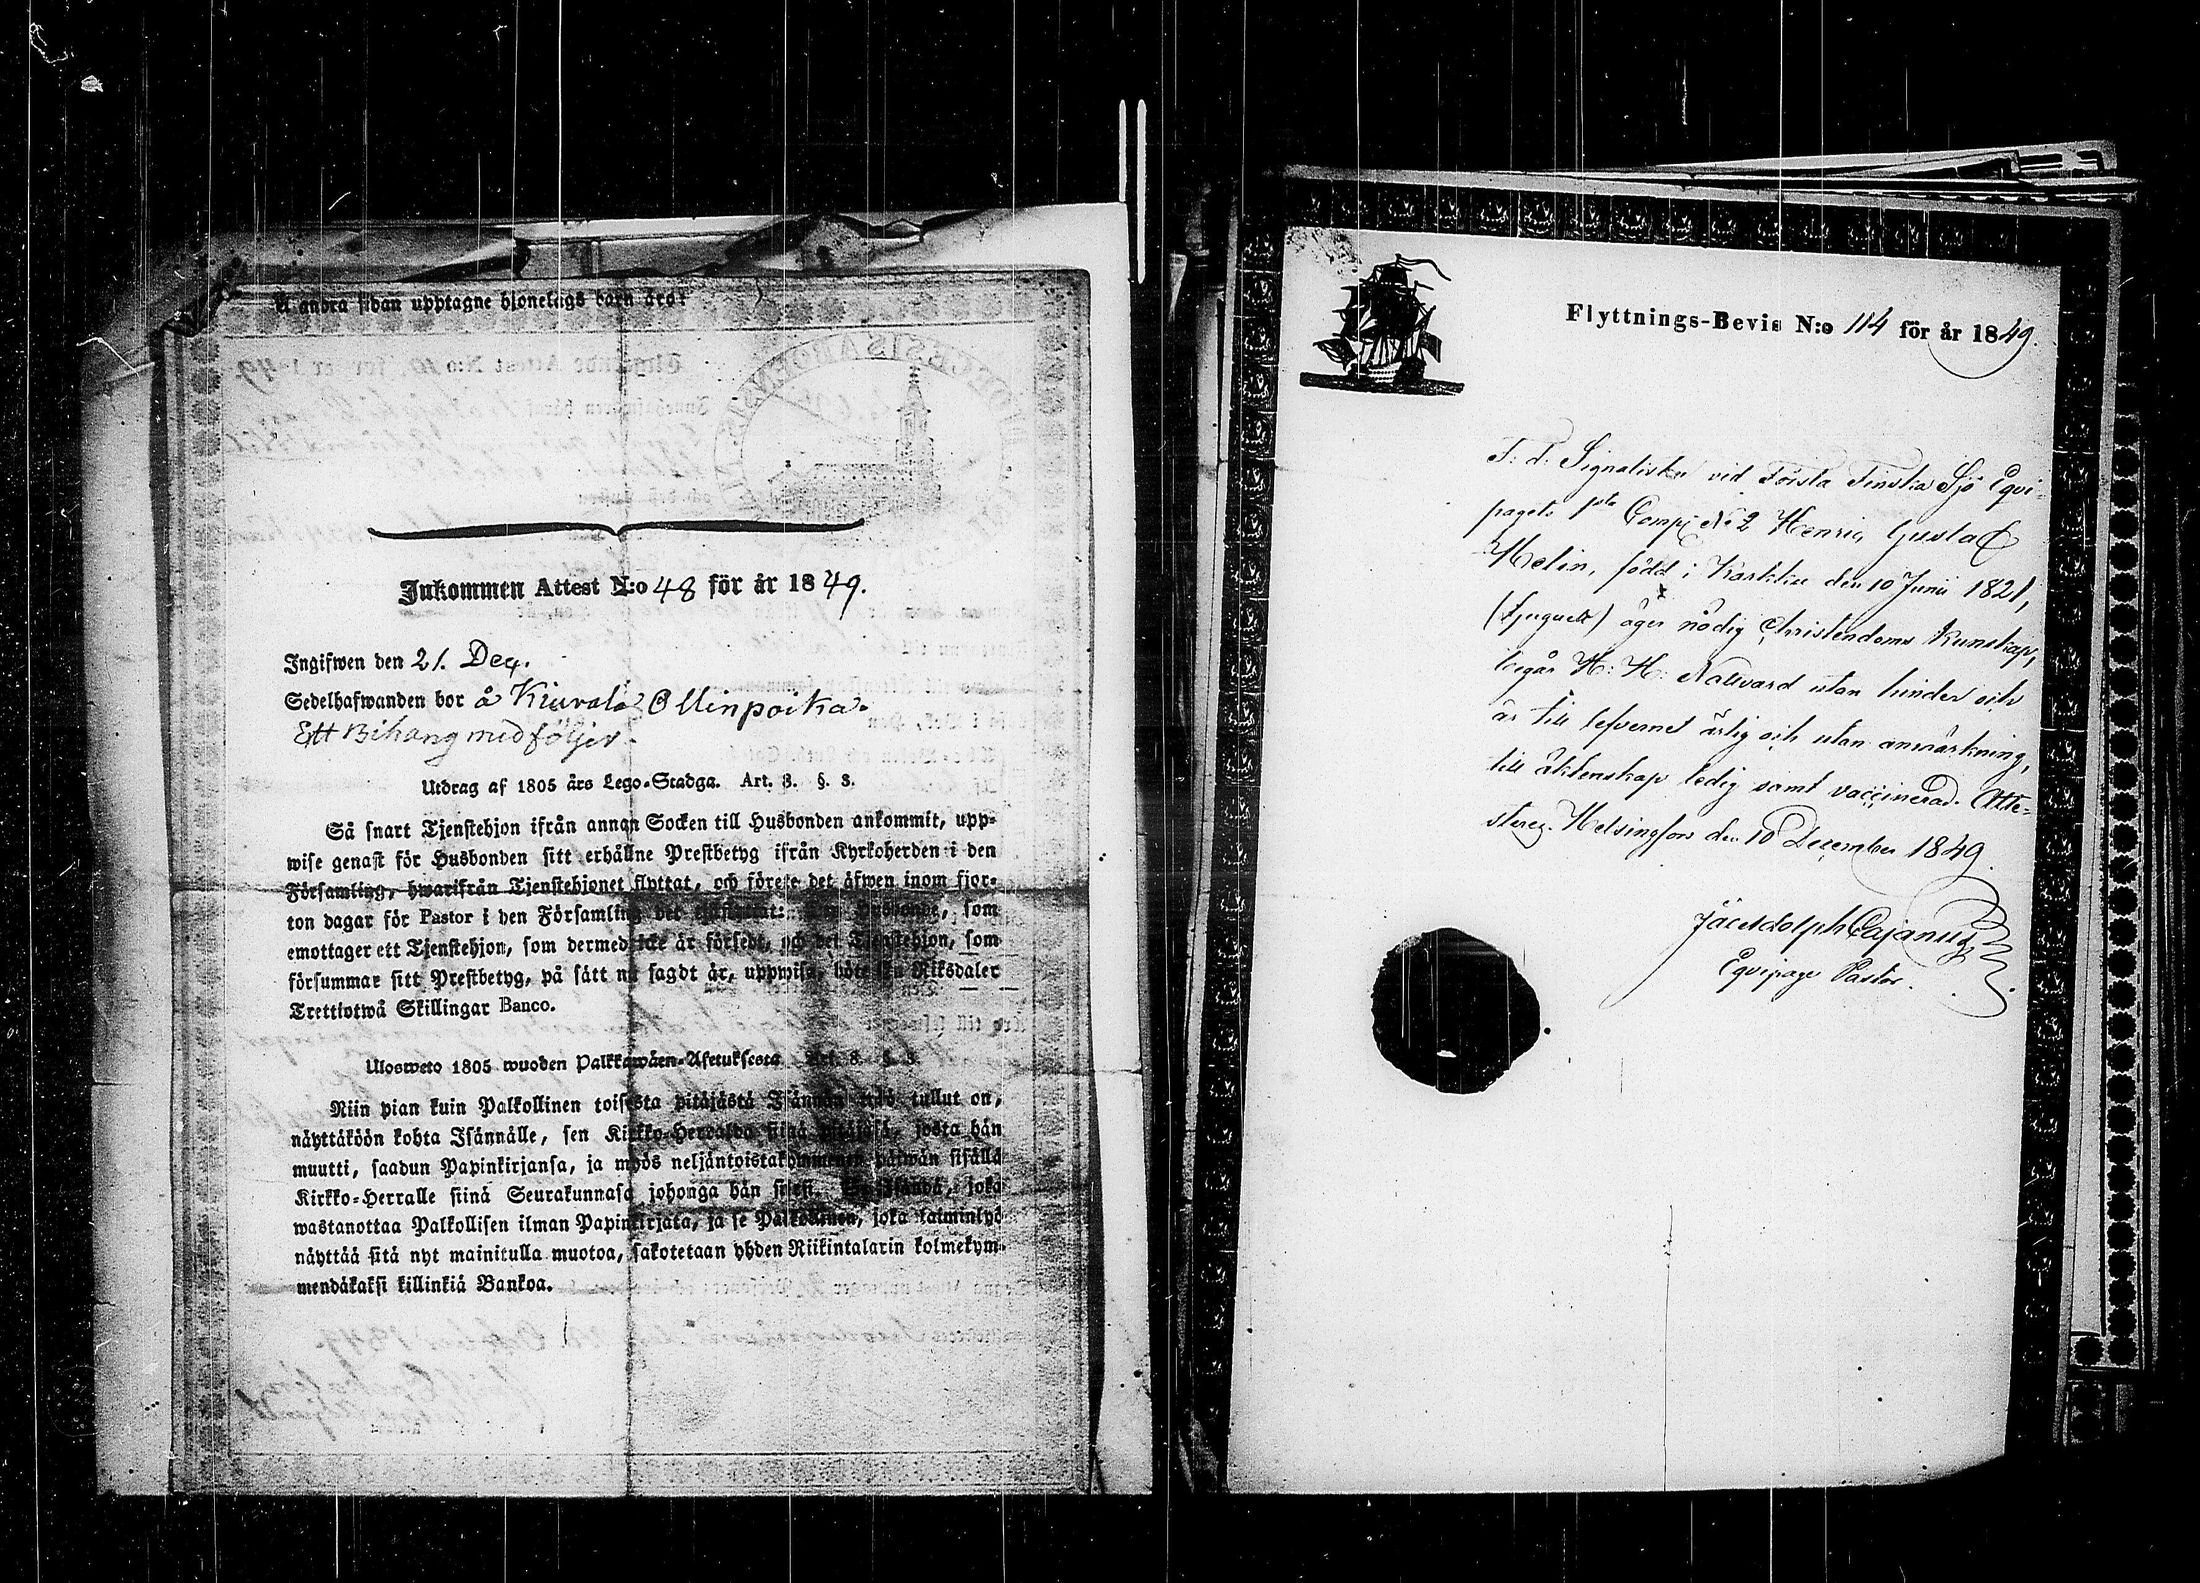 Å andra sidan upptagne hjonelags barn äro:
Inkommen Attest N:o 48 för år 1849.
Ingifwen den 21. Dec.
Sedelhafwanden bor å Kiuvala Ollinpoika.
Ett Bihang medföljer.
Utdrag af 1805 års Lego-Stadga. Art. 3. §. 3.
Så snart Tjenstehjon ifrån annan Socken till Husbonden ankommit, upp-
wise genast för Husbonden sitt erhållne Prestbetyg ifrån Kyrkoherden i den
Församling, hwarifrån Tjenstehjonet flyttat, och förete det äfwen inom fjor-
ton dagar för Pastor i den Församling det Husbonde, som
emottager ett Tjenstehjon, som dermed icke är försedt, och det Tjenstehjon, som
försummar sitt Prestbetyg, på sätt nu sagdt är, uppwisa, böte En Riksdaler
Trettiotwå Skillingar Banco.
Ulosweto 1805 wuoden Palkkawäen-Asetuksesta Art. 3. §. 3.
Niin pian kuin Palkollinen toisesta pitäjästä Isännän tullut on,
näyttäköön kohta Isännälle, sen Kirkko-Herralta siinä pitäjäsä, josta hän
muutti, saadun Papinkirjansa, ja myös neljäntoistakymmenen päiwän sisällä
Kirkko-Herralle siinä Seurakunnasa johonga hän joka
wastanottaa Palkollisen ilman Papinkirjata, ja se Palkollinen, joka laiminlyö
näyttää sitä nyt mainitulla muotoa, sakotetaan yhden Riikintalarin kolmekym-
mendäkaksi killinkiä Bankoa.
Flyttnings-Bevis N:o 114 för år 1849.
F: d: Signalisten vid Första Finska Sjö Eqvi-
pagets 1sta Comp: No 2 Henric Gustaf
Melin, född i Karkku den 10 Junii 1821,
(tjuguett) äger nödig Christendoms kunskap,
begår H: H: Nattvard utan hinder och
är till lefvernet ärlig och utan anmärkning,
till äktenskap ledig samt vaccinerad. Atte-
steras. Helsingfors den 10 December 1849.
Jac Adolph Cajanus
Eqvipage Pastor.